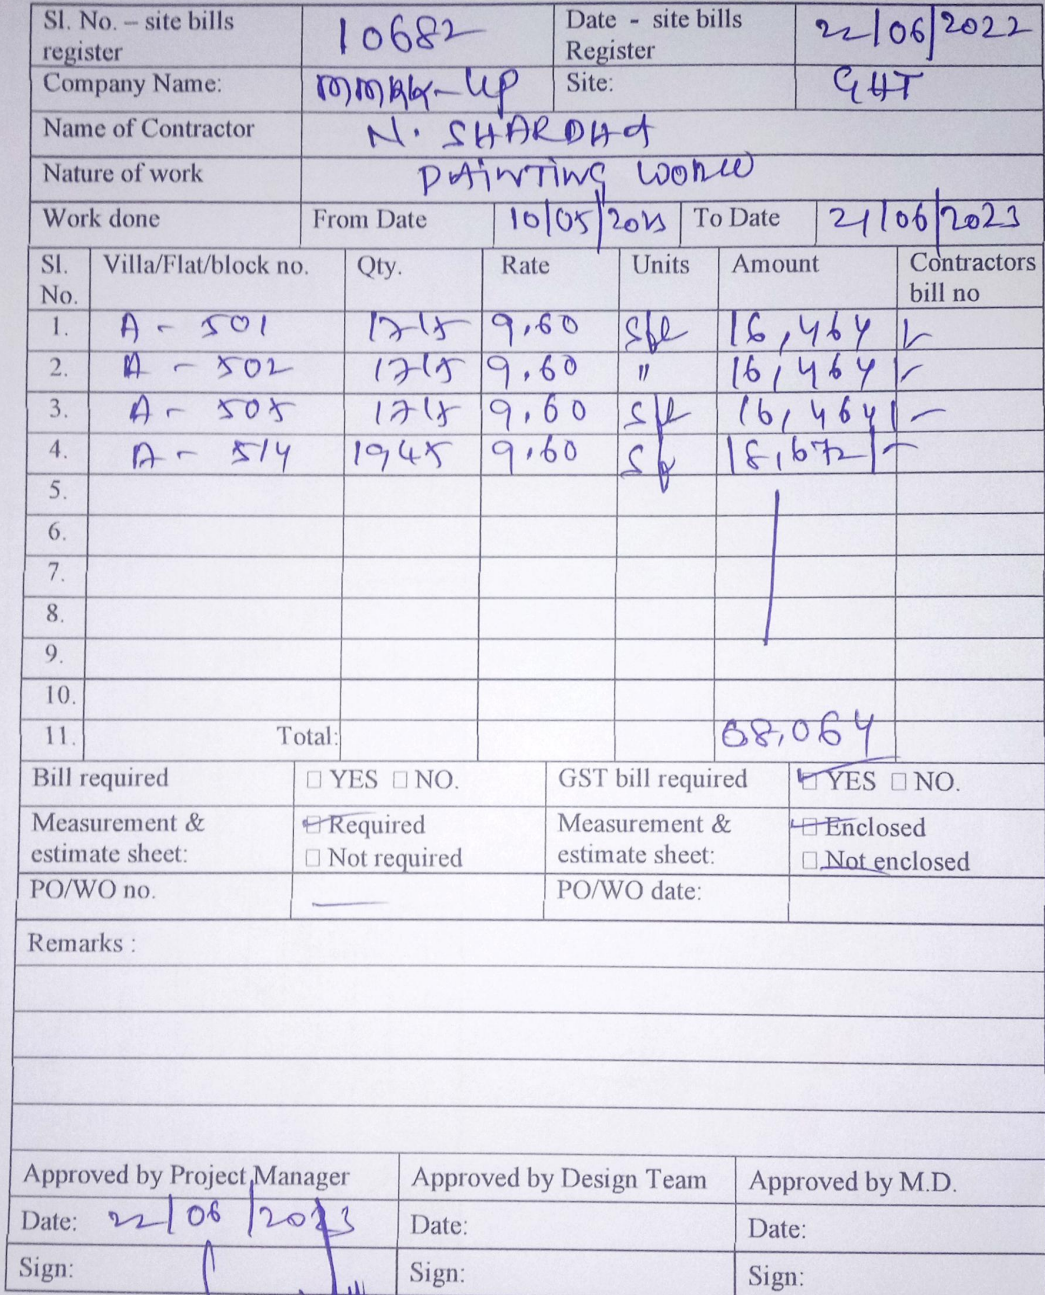 Sl. No. – site bills register 10682 Date - site bills Register 22/06/2022
Company Name: Site: GHT
Name of Contractor N. SHARDHA
Nature of work PAINTING
Work done From Date 10/05/ To Date 21/06/2023
Sl. No. Villa/Flat/block no. Qty. Rate Units Amount Contractors bill no
1. A - 501 1715 9.60 16,464
2. A - 502 1715 9.60 " 16,464
3. A - 505 1715 9.60 16,464
4. A - 514 1945 9.60 18,672
5.
6.
7.
8.
9.
10.
11. Total: 68,064
Bill required □ YES □ NO. GST bill required □ YES □ NO.
Measurement & estimate sheet: □ Required □ Not required Measurement & estimate sheet: □ Enclosed □ Not enclosed
PO/WO no. — PO/WO date:
Remarks :
Approved by Project Manager Approved by Design Team Approved by M.D.
Date: 22/06/2023 Date: Date:
Sign: Sign: Sign: